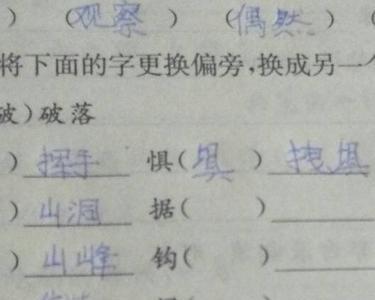 ) (观察) (偶然) (
将下面的字更换偏旁,换成另一个
破)破落
) 挥手 惧(埧) 拽埧
) 山洞 据( )
) 山峰 钩( )